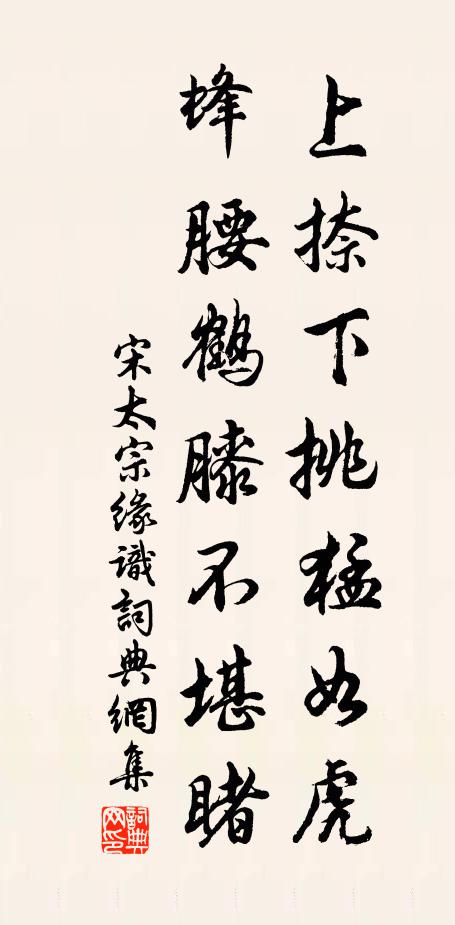 上捺下挑猛如虎
蜂腰鶴膝不堪睹
宋太宗緣識詞典網集
詞典网印